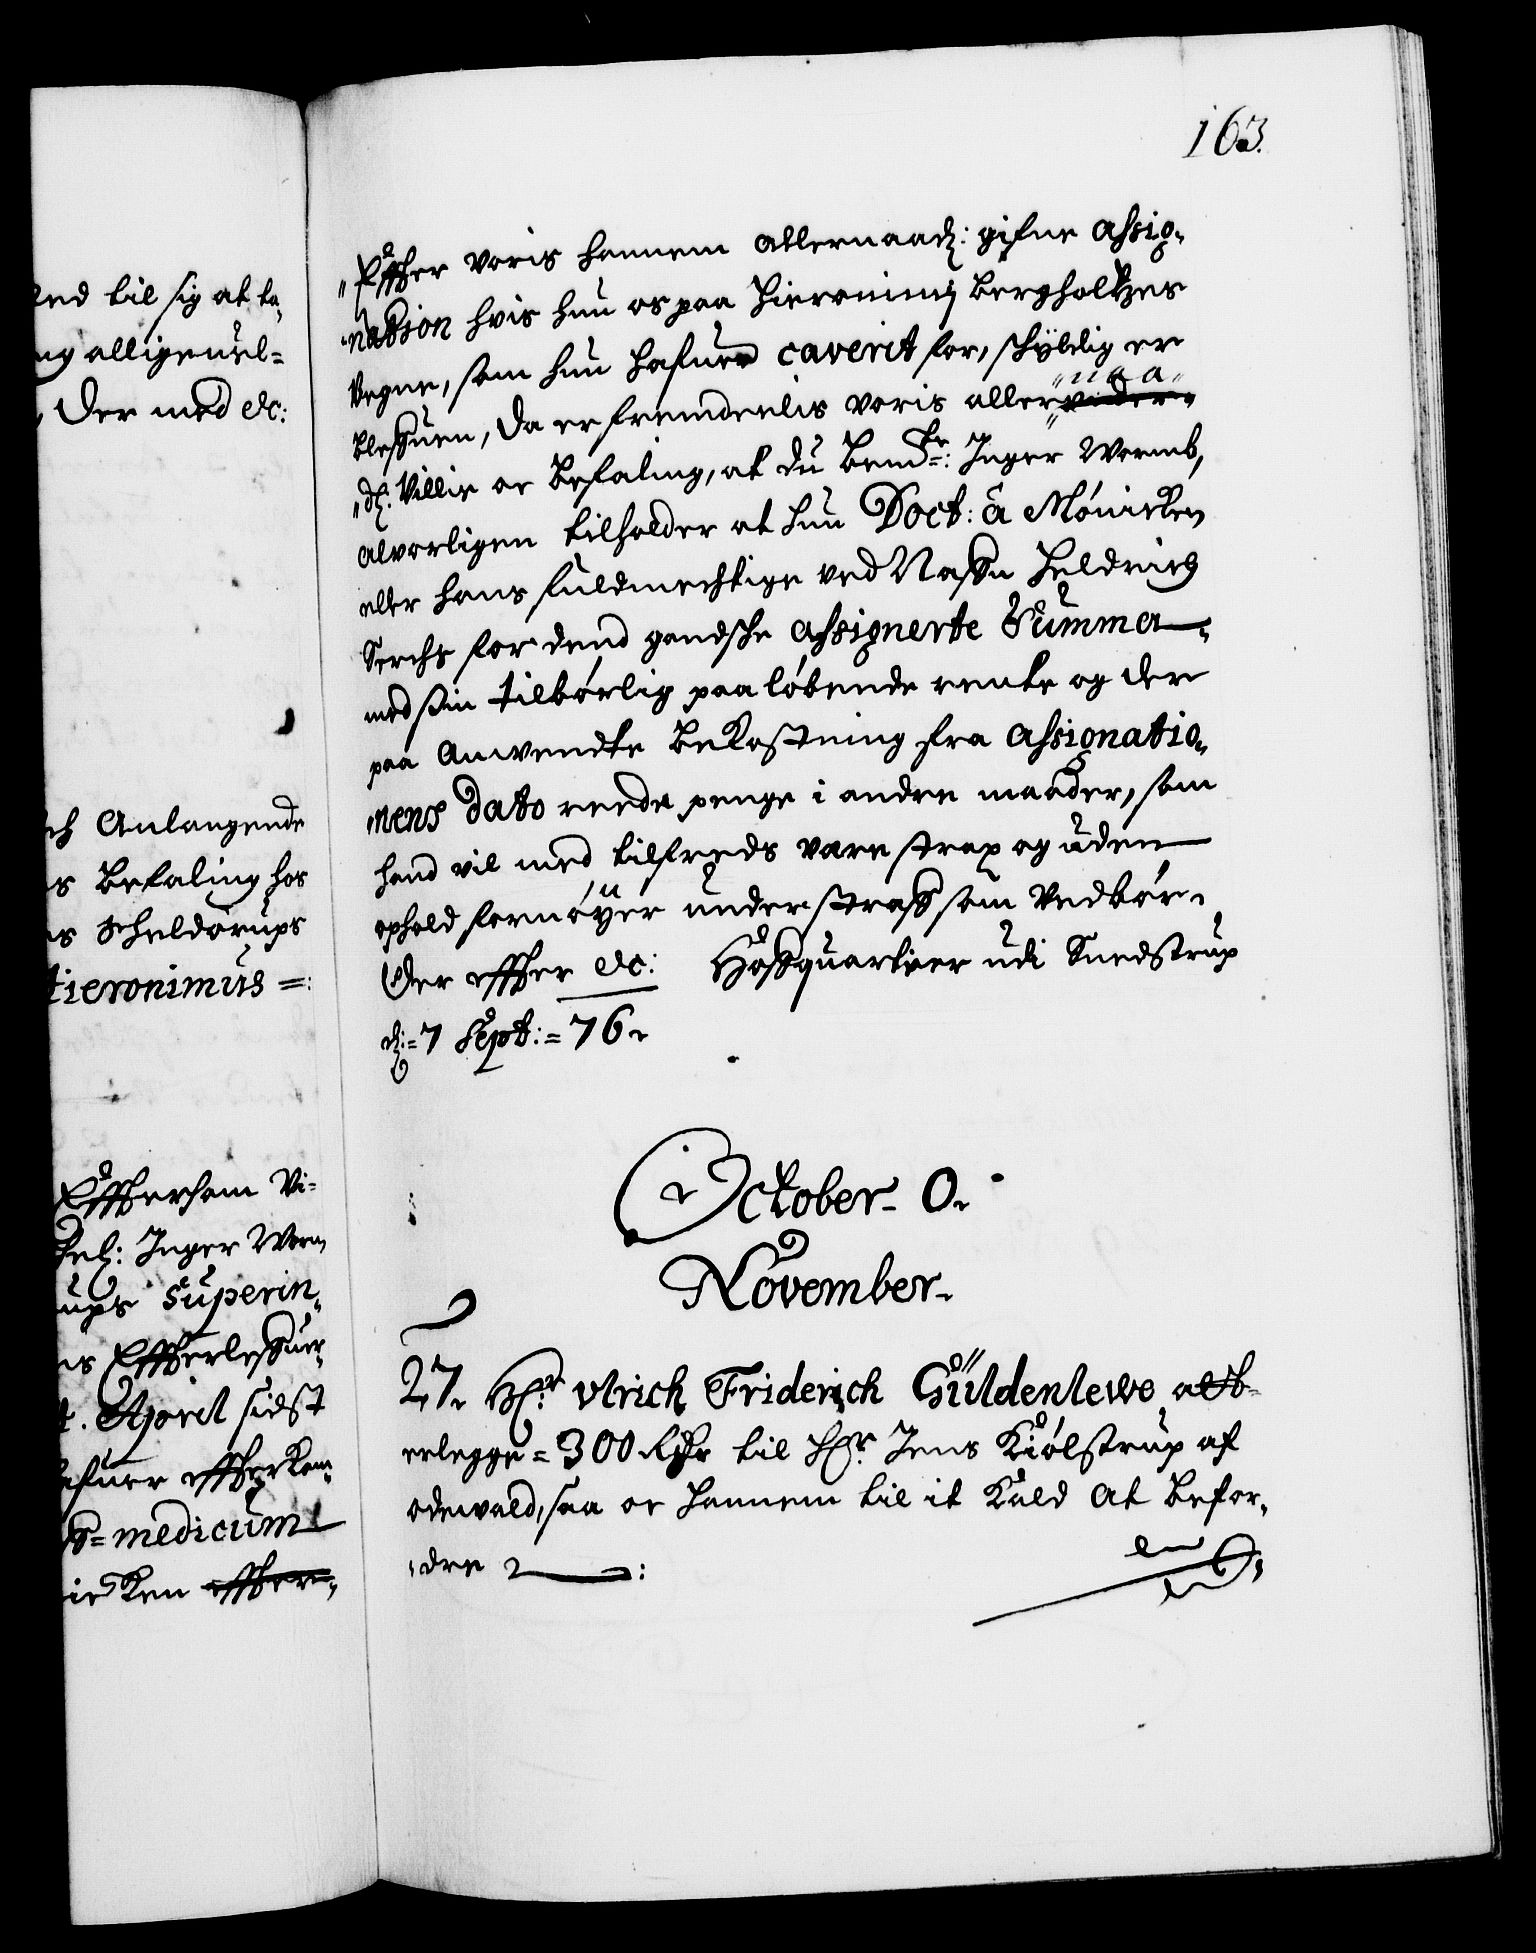 163.
„Effter voris hannem allernaadˢ: gifne assig„
„nation hvis hun os paa Hieronimj Bergholtzes
Vegne, som hun hafuer caverit for, schÿldig er
blefuen, da er fremdeelis voris aller„naa„
„dˢ: Villie oc Befaling, at du Bemte: Inger Wormb,
alvorligen tilholder at hun Doct: â Mónicken
eller hans fuldmechtige ved Nafn Heldrich
Serchs for dend gandsche assignerte Summa
med sin tilbórlig paa lóbende rente og der
paa anvendte bekostning fra assignatio„
„nens dato reede penge i andre maader, som
hand vil med tilfreds være strax og uden
ophold fornóÿer under straf som vedbór.
Der effter etc: Hofquarteer udi Snedstrup
dˢ:= 7 Sept:= 76.
October. 0.
November.
27. Hr: Ulrich Friderich Güldenlewe att
erlegge = 300 Rdr til Hr. Jens Kiólstrup af
odewald, saa oc hannem til it Kald at befor„
„dre :
en
red til sig at ta„
ng alligeuel=
, Der med etc:
ch Anlangende
s befaling hos
s Scheldorups
Hieronimus =:
Efftersom Vi=
Sal: Inger Worm
rups Superin„
es Effterlefuer„
t. April sidst
hafuer effterkom„
s= medicum
icken effter„